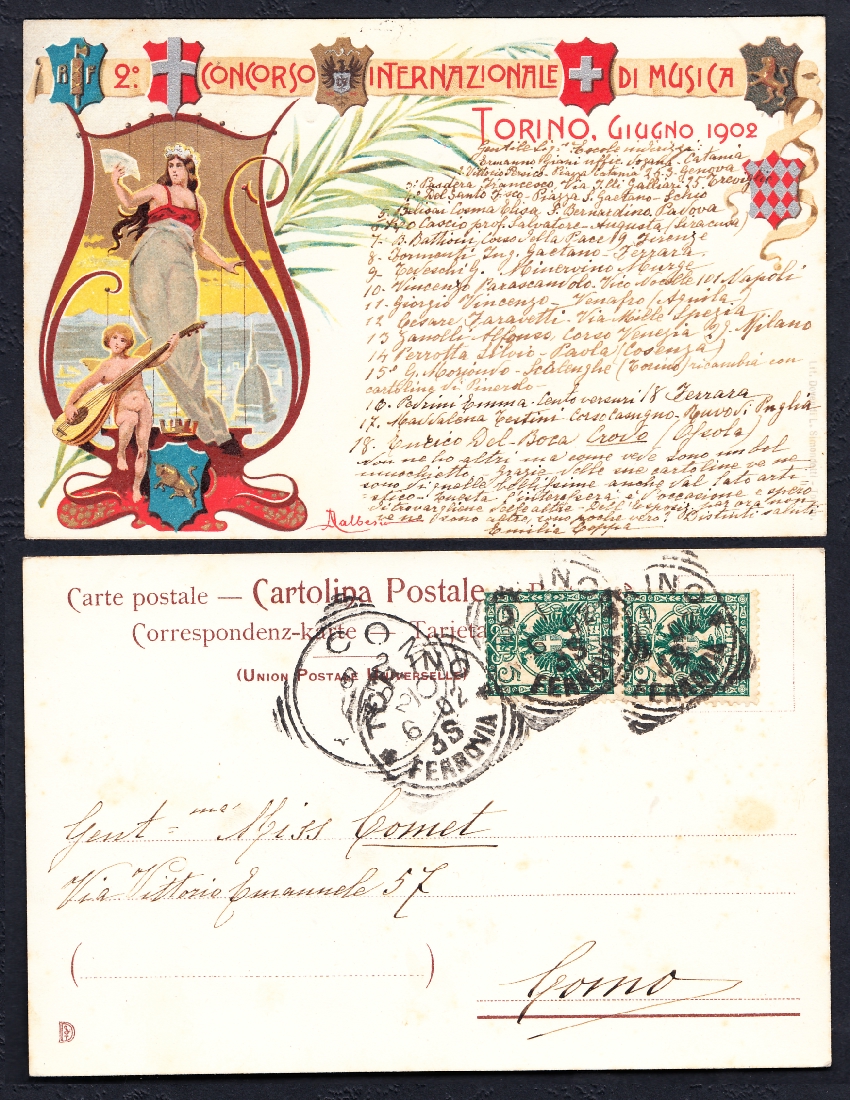 R F
2º CONCORSO INTERNAZIONALE DI MUSICA
TORINO, GIUGNO, 1902
Gentile Sig.ª Eccole indirizzi:
Ermanno Biani uffic. Dogana. Catania
Vittorio Piazza Catania Genova
3º Pandera Francesco, Via F.lli Galliari 25. Treviglio
Del Santo Piazza S. Gaetano - Schio
5. Cosma Elisa, S. Bernardino, Padova
Lo Cascio prof. Salvatore - Augusta (Siracusa)
7. B. Battoni, Corso della Pace 19, Firenze
8. Bormonti, Ing. Gaetano - Ferrara.
9. Tedeschi G. Minervino Murge
10. Vincenzo Parascandolo. Vico Nocelle 101 Napoli
11. Giorgio Vincenzo - Venafro (Aquila)
12 Cesare Zaravetti - Via Mille Spezia
13 Zanolli Alfonso, Corso Venezia Milano
14 Perrotta Silvio - Paola (Cosenza)
15º G. Moriondo - Scalenghe (Torino) ricambia con
cartoline di Pinerolo -
16. Pedrini Emma - Cento versuri 18 Ferrara
17. Maddalena Testini - Corso Cavugno - Ruvo di Puglia
18. Enrico Del-Boca Crodo (Ossola)
Non ne ho altri ma come vede sono un bel
mucchietto. Grazie delle sue cartoline ve ne
sono di quelle bellissime anche dal lato arti-
stico - Questa l'interesserà - l'occasione e spero
di trovargliene scelte altre - Dell' Esposiz. per ora non
ve ne sono altro, sono poche vero? Distinti saluti
Emilia Ceppa
Dalbesio
Carte postale — Cartolina Postale
Correspondenz-karte Tarjeta
(UNION POSTALE UNIVERSELLE)
COMO
TORINO
6 02
3S
FERROVIA
FERROVIA
FERROVIA
Gent = ma Miss Comet
Via Vittorio Emanuele 57
Como
D